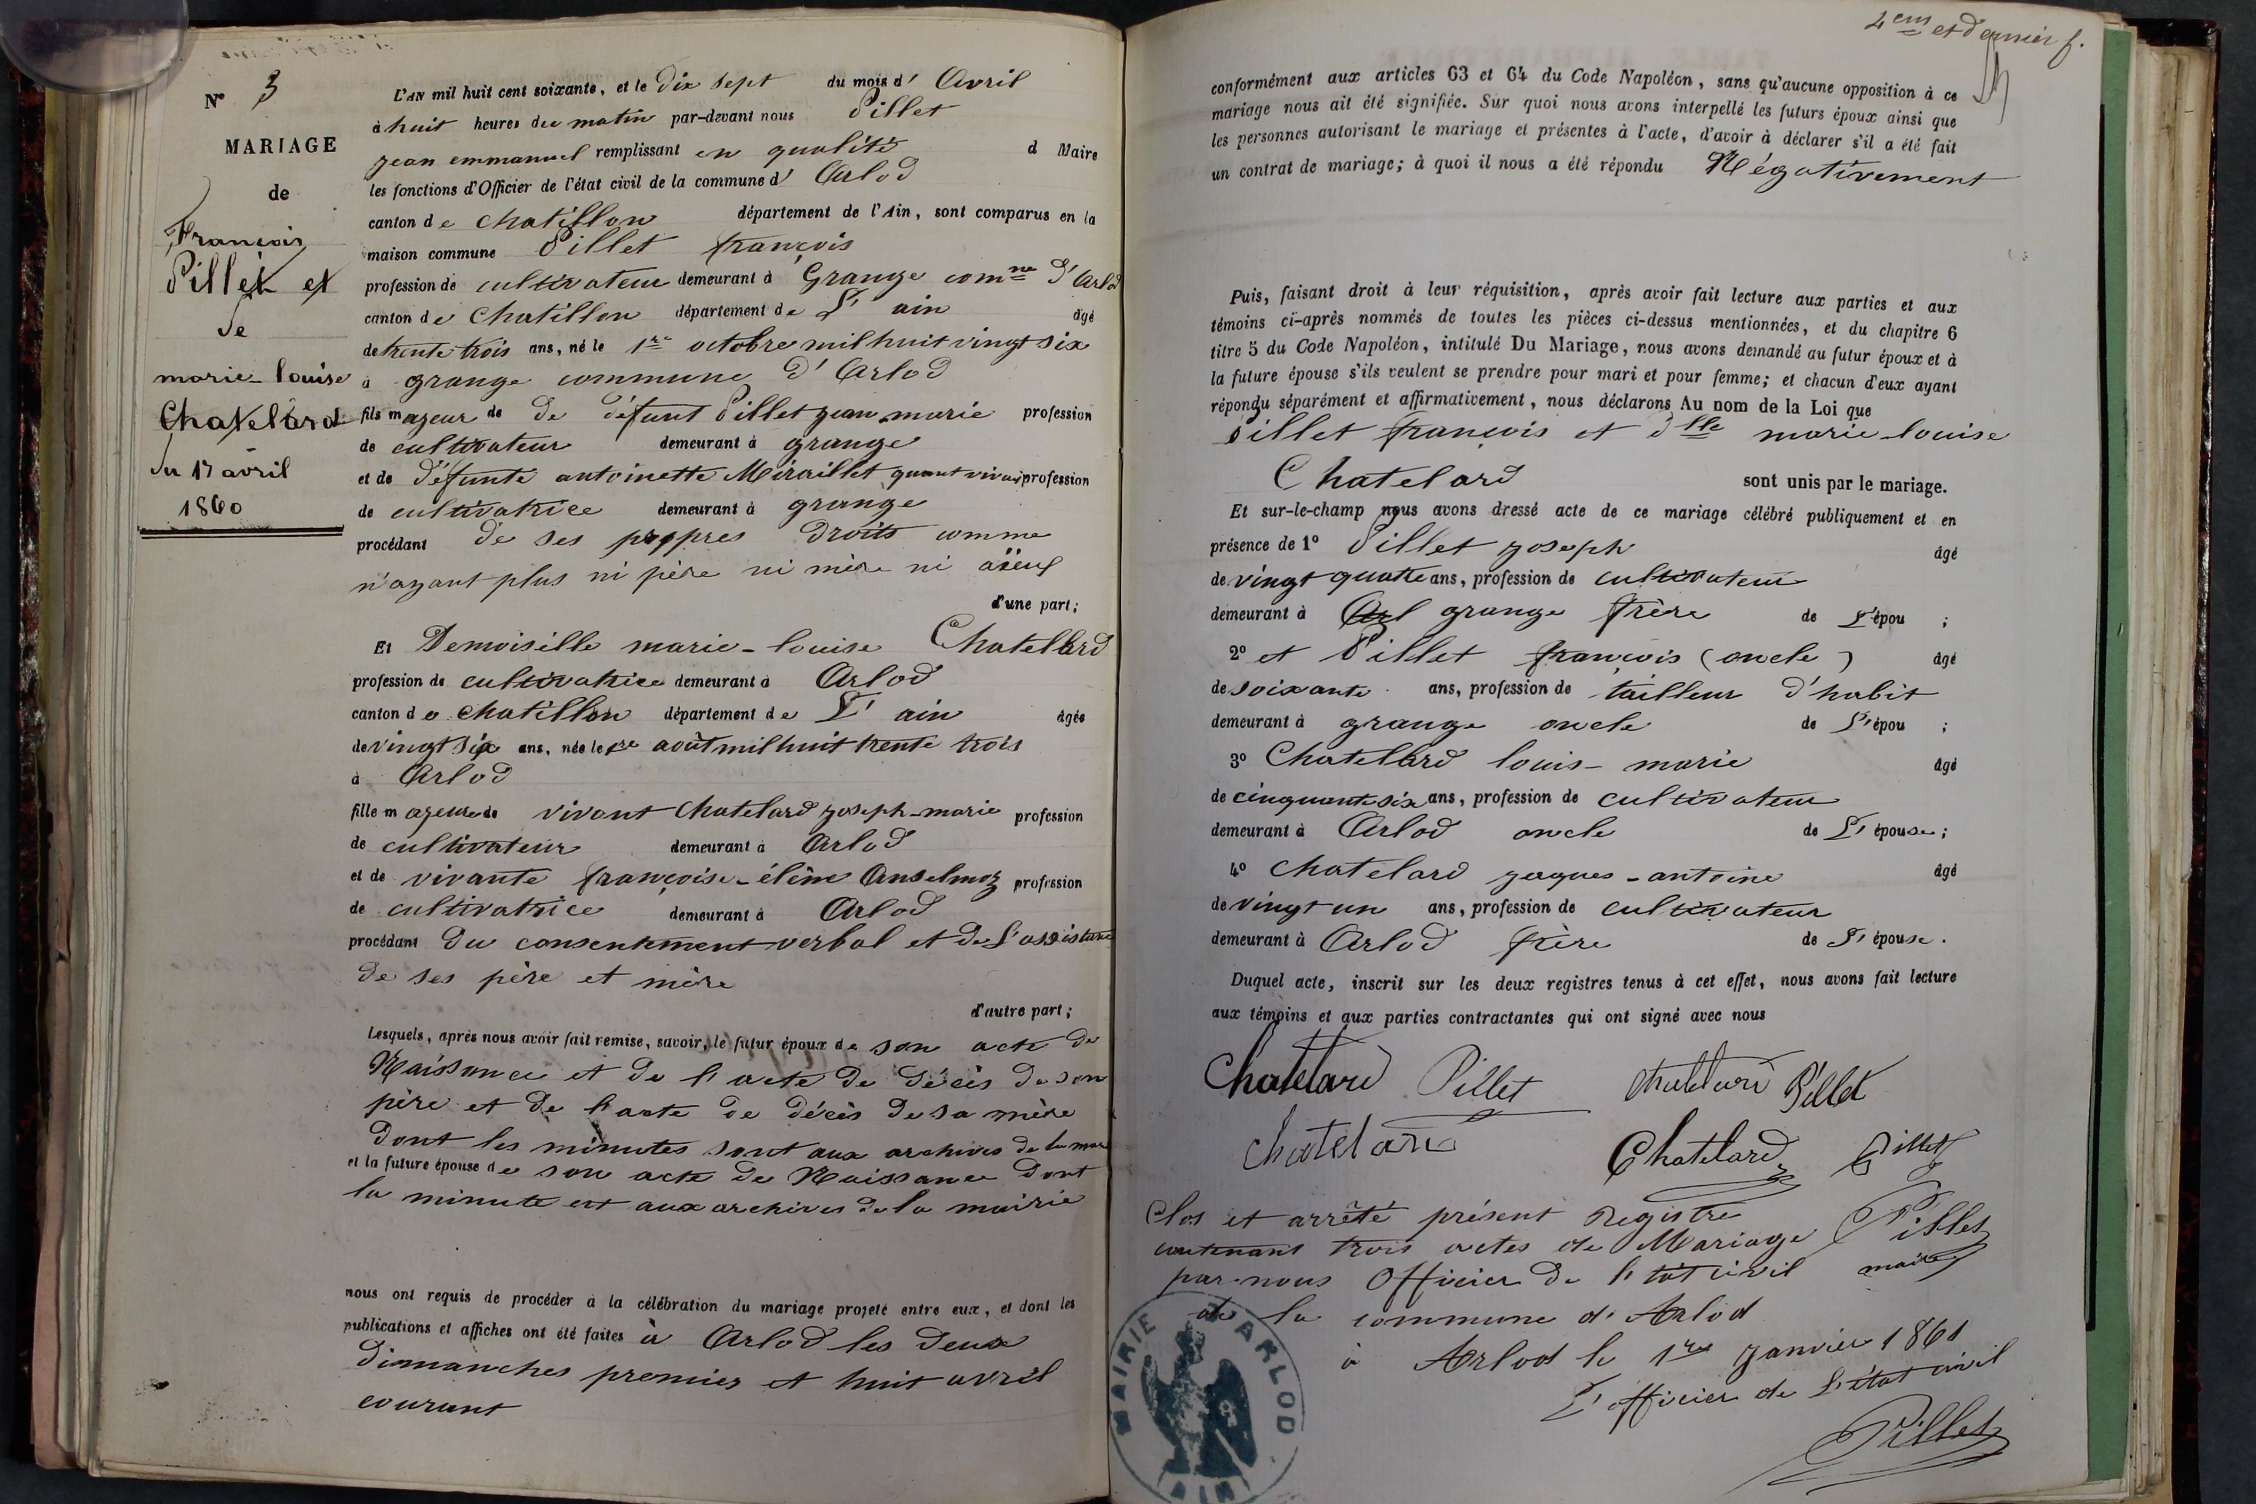 N° 3
MARIAGE
de
François
Pillet et
de
marie-louise
Chatelard
du 17 avril
1860
L'AN mil huit cent soixante, et le dix sept du mois d' Avril
à huit heures du matin par-devant nous Pillet
jean emmanuel remplissant en qualité d Maire
les fonctions d'Officier de l'état civil de la commune d' Arlod
canton de chatillon département de l'Ain, sont comparus en la
maison commune Pillet françois
profession de cultivateur demeurant à Grange comne d'Arlod
canton de Chatillon département de L' ain âgé
de trente trois ans, né le 1re octobre mil huit vingt six
à grange commune d' Arlod
fils majeur de de défunt Pillet jean marie profession
de cultivateur demeurant à grange
et de défunte antoinette Miraillet quant vivai profession
de cultivatrice demeurant à grange
procédant de ses propres droits comme
n'ayant plus ni père ni mère ni aïeux
d'une part;
Et Demoiselle marie-louise Chatelard
profession de cultivatrice demeurant à Arlod
canton de chatillon département de L' ain âgée
de vingt six ans, née le 1re août mil huit trente trois
à Arlod
fille majeure de vivant Chatelard joseph-marie profession
de cultivateur demeurant à Arlod
et de vivante françoise-élène Anselmoz profession
de cultivatrice demeurant à Arlod
procédant du consentement verbal et de L'assistance
de ses père et mère
d'autre part;
Lesquels, après nous avoir fait remise, savoir, le futur époux de son acte de
Naissance et de l'acte de décès de son
père et de l'acte de décès de sa mère
dont les minutes sont aux archives de la mai
et la future épouse de son acte de Naissance dont
la minute est aux archives de la mairie
nous ont requis de procéder à la célébration du mariage projeté entre eux, et dont les
publications et affiches ont été faites à Arlod les deux
dimanches premier et huit avril
courant
4em et dernier f.
conformément aux articles 63 et 64 du Code Napoléon, sans qu'aucune opposition à ce
mariage nous ait été signifiée. Sur quoi nous avons interpellé les futurs époux ainsi que
les personnes autorisant le mariage et présentes à l'acte, d'avoir à déclarer s'il a été fait
un contrat de mariage; à quoi il nous a été répondu Négativement
Puis, faisant droit à leur réquisition, après avoir fait lecture aux parties et aux
témoins ci-après nommés de toutes les pièces ci-dessus mentionnées, et du chapitre 6
titre 5 du Code Napoléon, intitulé Du Mariage, nous avons demandé au futur époux et à
la future épouse s'ils veulent se prendre pour mari et pour femme; et chacun d'eux ayant
répondu séparément et affirmativement, nous déclarons Au nom de la Loi que
Pillet françois et dlle marie-louise
Chatelard sont unis par le mariage.
Et sur-le-champ nous avons dressé acte de ce mariage célébré publiquement et en
présence de 1° Pillet joseph âgé
de vingt quatre ans, profession de cultivateur
demeurant à grange frère de L'épou ;
2° et Pillet françois (oncle) âgé
de soixante ans, profession de tailleur d'habit
demeurant à grange oncle de L'épou ;
3° Chatelard louis-marie âgé
de cinquante six ans, profession de cultivateur
demeurant à Arlod oncle de L'épouse;
4° chatelard jaques-antoine âgé
de vingt un ans, profession de cultivateur
demeurant à Arlod frère de L'épouse.
Duquel acte, inscrit sur les deux registres tenus à cet effet, nous avons fait lecture
aux témoins et aux parties contractantes qui ont signé avec nous
Chatelard Pillet chatelard Pillet
chatelard Chatelard Pillet
Clos et arrêté présent Registre
contenant trois actes de Mariage Pillet
par nous Officier de l'état civil maire
de la commune d'Arlod
à Arlod le 1er janvier 1861
L'officier de L'état civil
Pillet
MAIRIE D'ARLOD
AIN